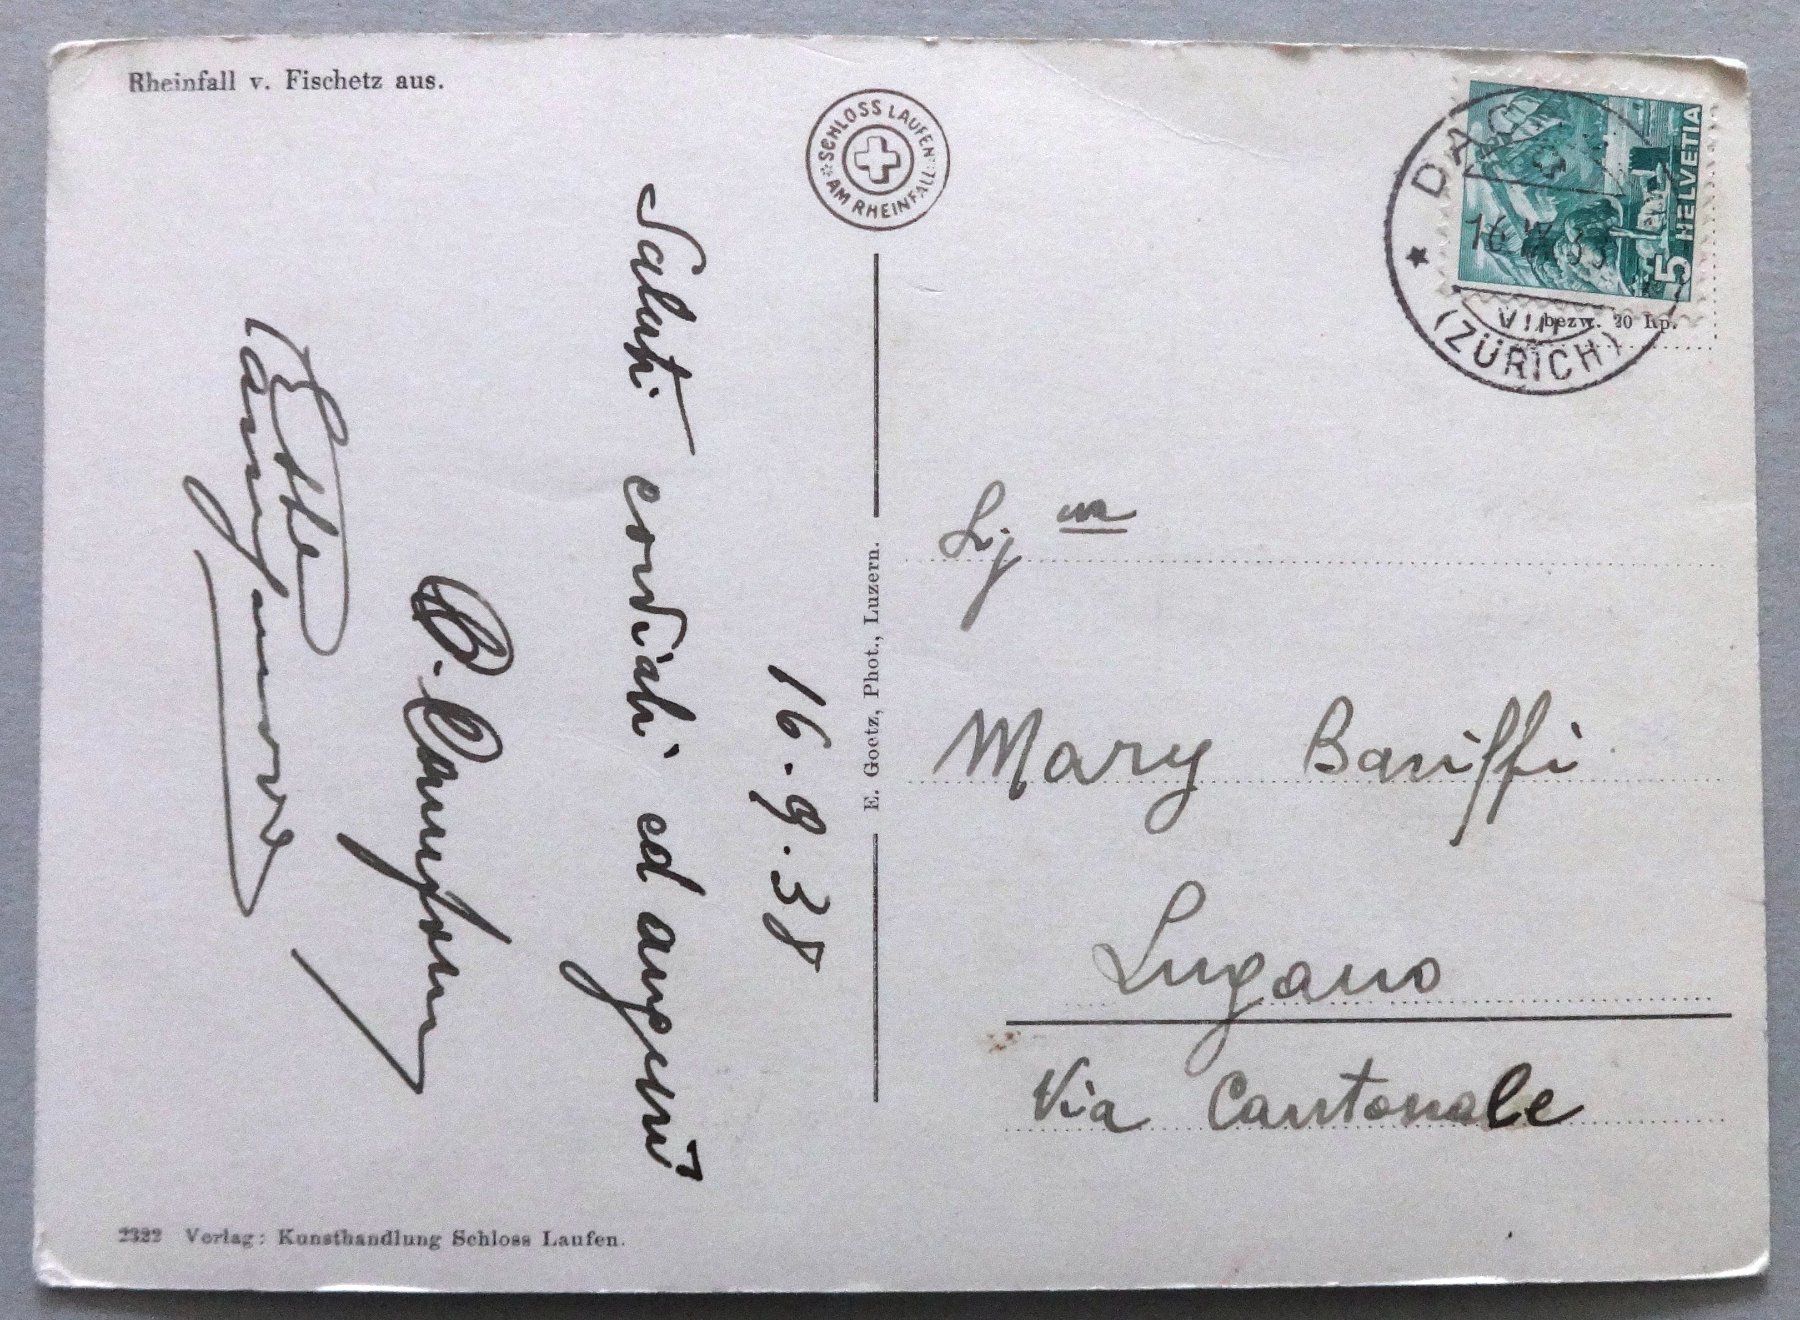 Rheinfall v. Fischetz aus.
SCHLOSS LAUFEN
AM RHEINFALL
HELVETIA
5
16
(ZÜRICH)
VIII
bezw. 20 Rp.
16.9.38
Saluti cordiali ed auguri
B.
E. Goetz, Phot., Luzern.
Sig na
Mary Bariffi
Lugano
Via Cantonale
2322 Verlag: Kunsthandlung Schloss Laufen.